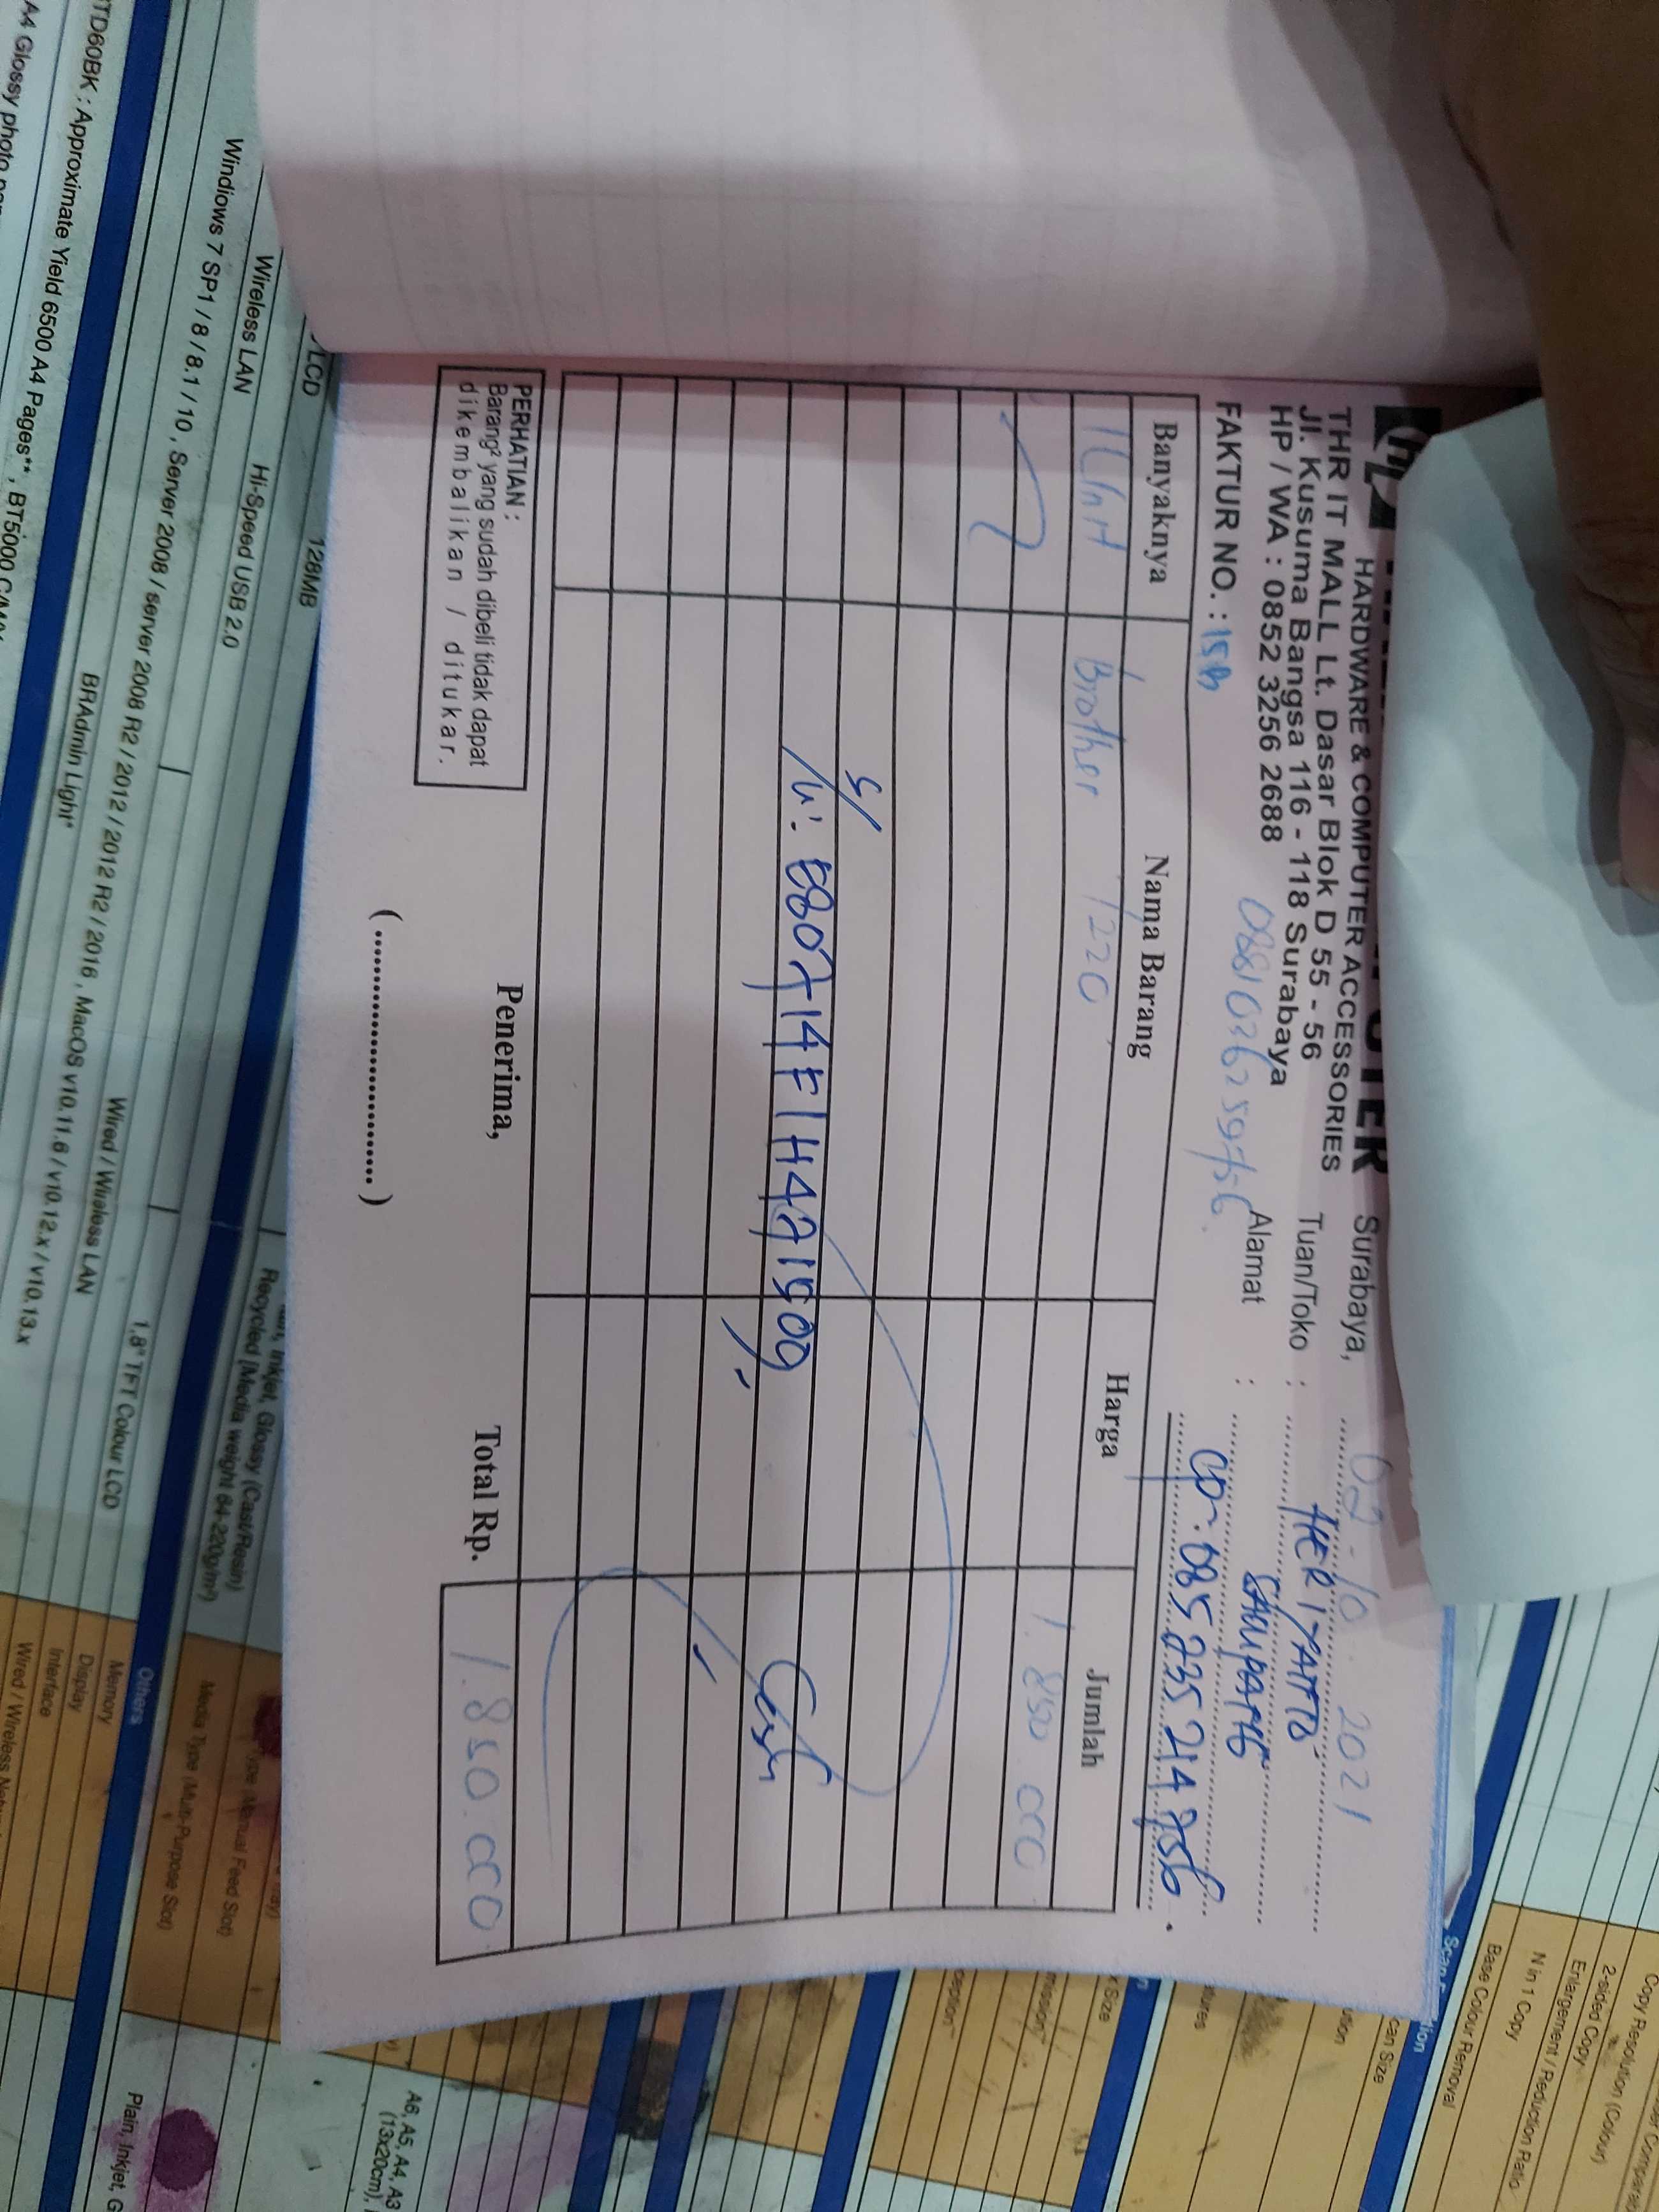 HARDWARE & COMPUTER ACCESSORIES
THR IT MALL Lt. Dasar Blok D 55 - 56
Jl. Kusuma Bangsa 116 - 118 Surabaya
HP / WA : 0852 3256 2688
Surabaya, 02 - 10 2021
Tuan/Toko : HERIYANTO
Alamat :
CP. 085 235 214 756.
FAKTUR NO. :
Banyaknya Nama Barang Harga Jumlah
1 Unit Brother T220 1.850.000
S/
N: E80714F1H421509
Cash
PERHATIAN :
Barang² yang sudah dibeli tidak dapat
dikembalikan / ditukar.
Penerima,
(........................)
Total Rp. 1.850.000
LCD
128MB
Wireless LAN
Hi-Speed USB 2.0
Windows 7 SP1 / 8 / 8.1 / 10 , Server 2008 / server 2008 R2 / 2012 / 2012 R2 / 2016 , MacOS v10.11.6 / v10.12.x / v10.13.x
BRAdmin Light*
TD60BK : Approximate Yield 6500 A4 Pages** , BT5000 C/M/Y
A4 Glossy photo
Wired / Wireless LAN
1,8" TFT Colour LCD
Inkjet, Glossy (Cast/Resin)
Recycled [Media weight 64-220g/m²)
Media Type (Multi-Purpose Slot)
Manual Feed Slot)
Others
Memory
Display
Interface
Wired / Wireless
Copy Resolution (Colour)
2-sided Copy
Enlargement / Reduction Ratio
N in 1 Copy
Base Colour Removal
A6, A5, A4, A3
(13x20cm),
Plain, Inkjet,